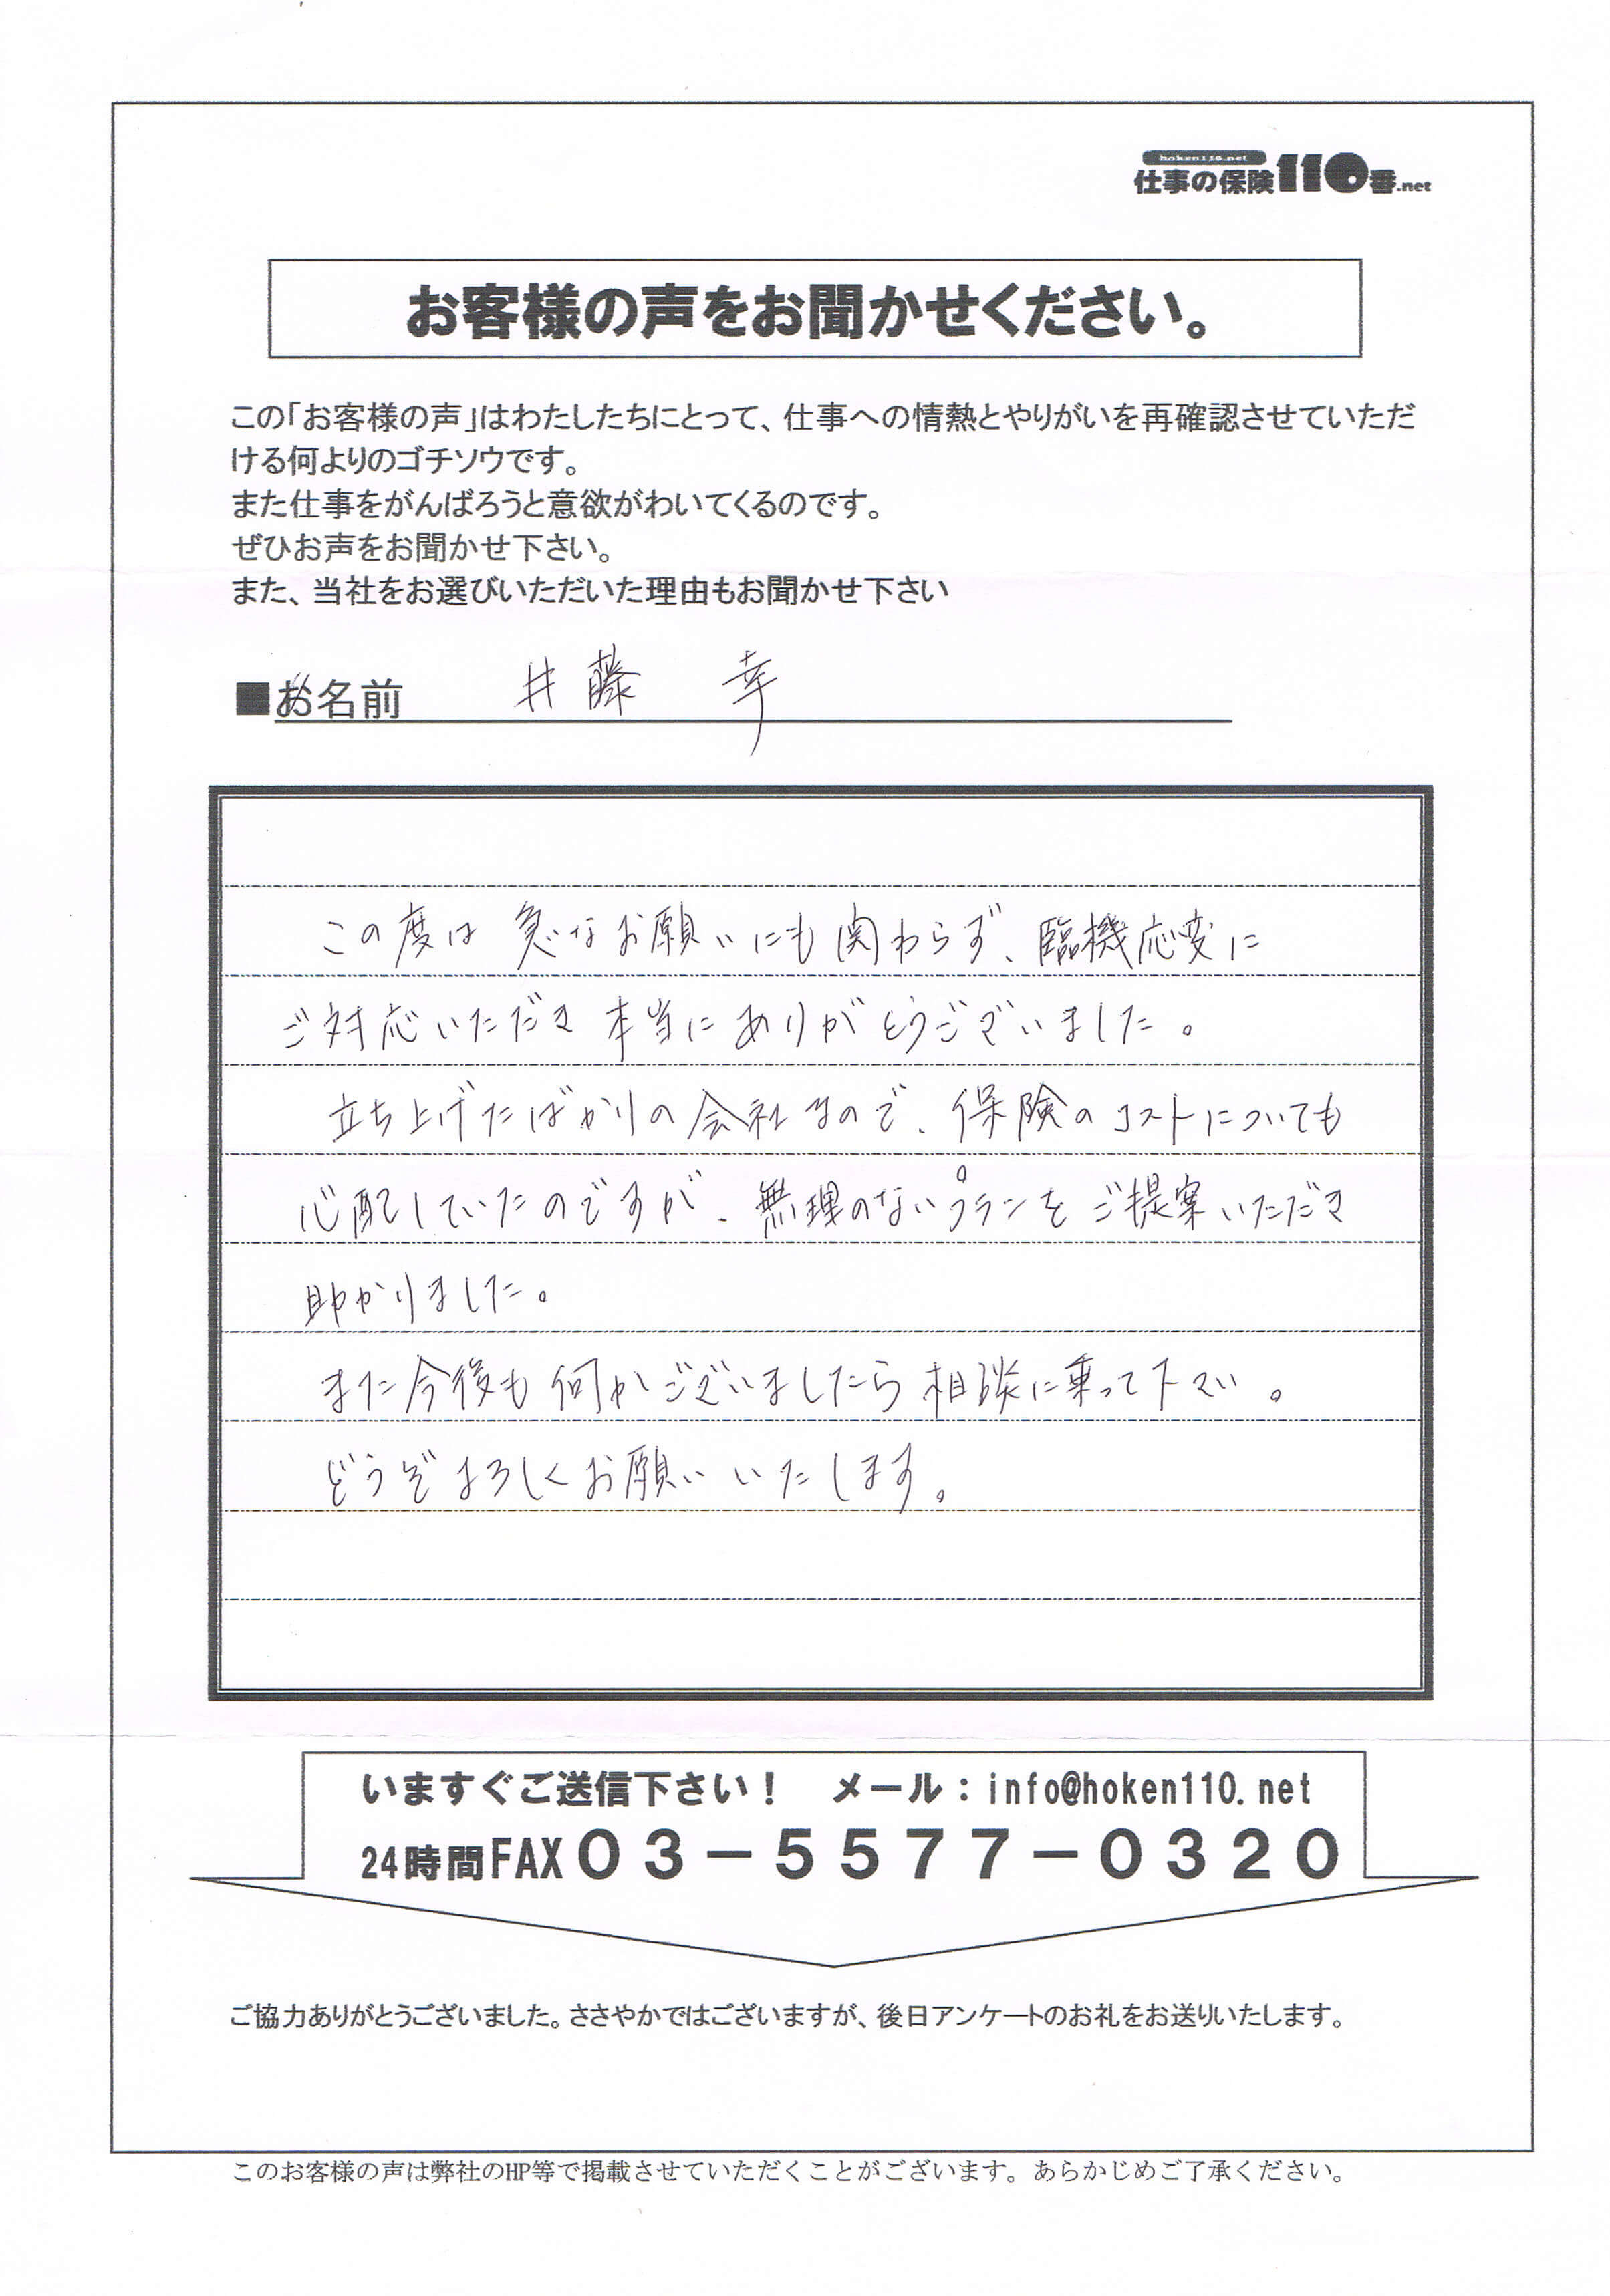 hoken110.net
仕事の保険110番.net
お客様の声をお聞かせください。
この「お客様の声」はわたしたちにとって、仕事への情熱とやりがいを再確認させていただ
ける何よりのゴチソウです。
また仕事をがんばろうと意欲がわいてくるのです。
ぜひお声をお聞かせ下さい。
また、当社をお選びいただいた理由もお聞かせ下さい
■お名前 井藤 幸
この度は急なお願いにも関わらず、臨機応変に
ご対応いただき本当にありがとうございました。
立ち上げたばかりの会社なので、保険のコストについても
心配していたのですが、無理のないプランをご提案いただき
助かりました。
また今後も何かございましたら相談に乗って下さい。
どうぞよろしくお願いいたします。
いますぐご送信下さい! メール:info@hoken110.net
24時間FAX03-5577-0320
ご協力ありがとうございました。ささやかではございますが、後日アンケートのお礼をお送りいたします。
このお客様の声は弊社のHP等で掲載させていただくことがございます。あらかじめご了承ください。